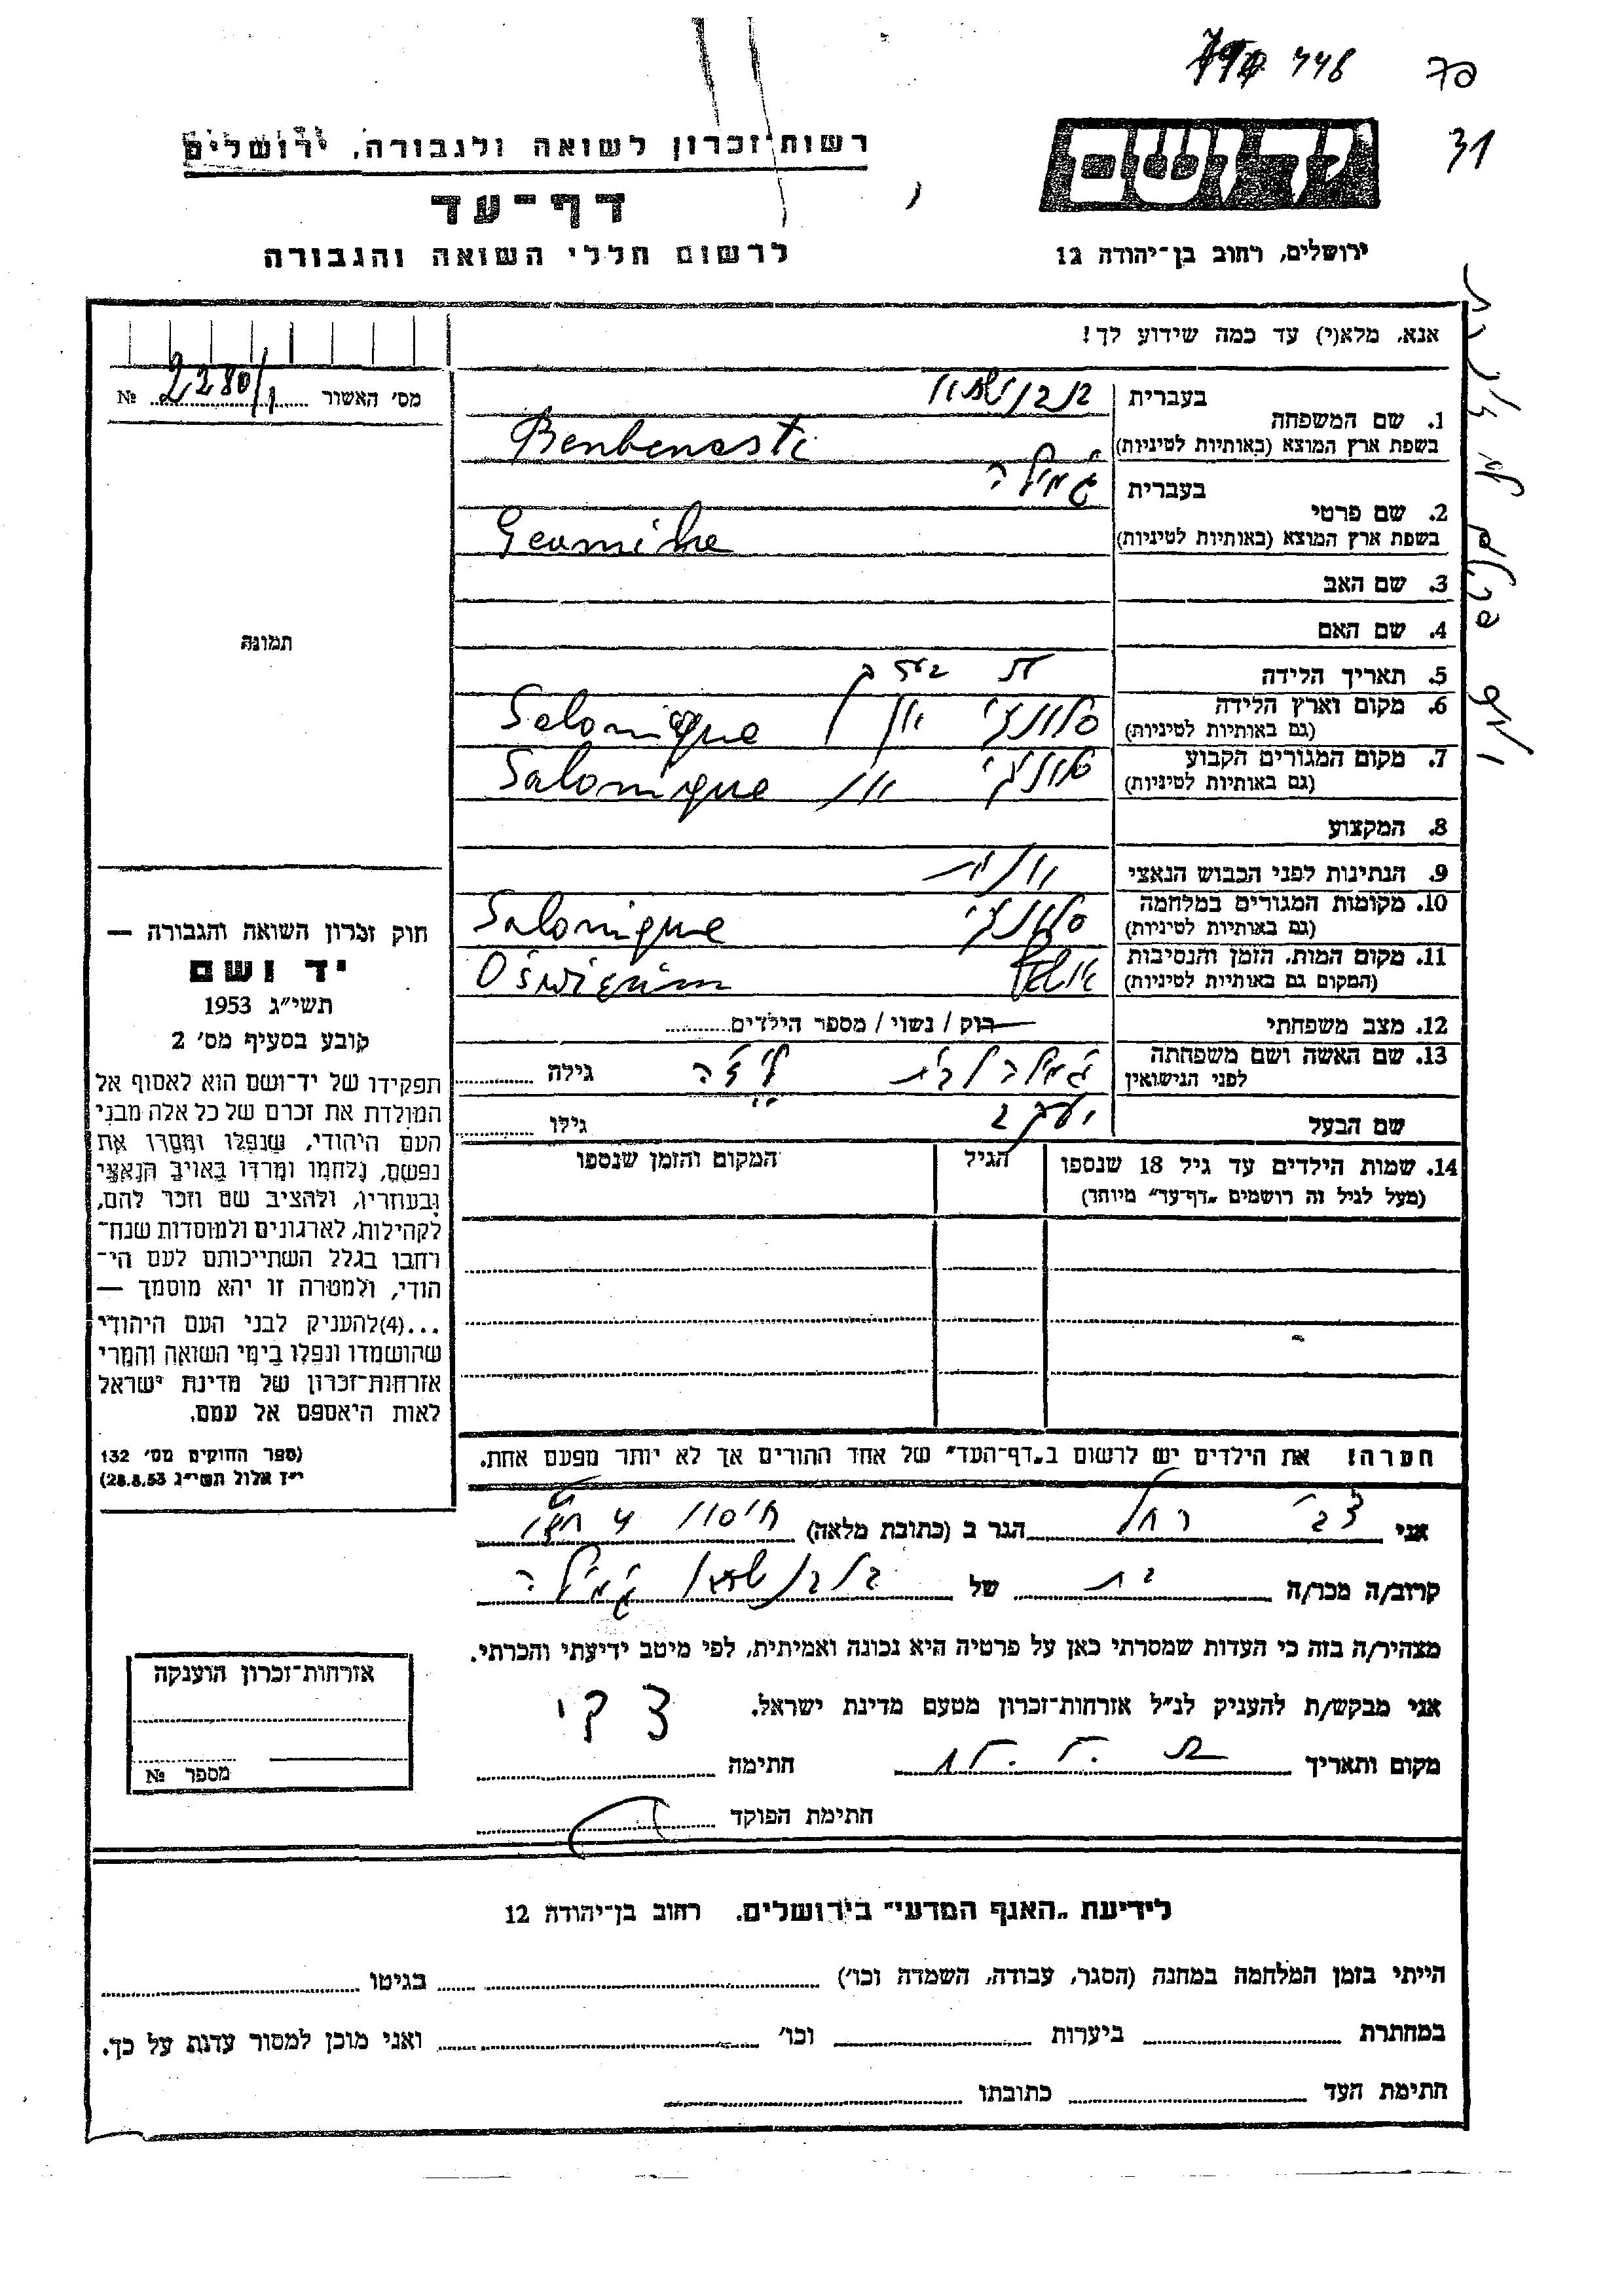 448
70
31
רשות־זכרון לשואה ולגבורה, ירושלים
דף־עד
לרשום חללי השואה והגבורה
יד ושם
ירושלים, רחוב בן־יהודה 12
אנא, מלא(י) עד כמה שידוע לך!
מס׳ האשור 2280/ №
1. שם המשפחה
בעברית
בשפת ארץ המוצא (באותיות לטיניות) Benbenasti
2. שם פרטי
בעברית ג'מילה
בשפת ארץ המוצא (באותיות לטיניות)
3. שם האב
4. שם האם
5. תאריך הלידה
6. מקום וארץ הלידה
(גם באותיות לטיניות) סלוניקי יון Salonique
7. מקום המגורים הקבוע
(גם באותיות לטיניות) סלוניקי יון Salonique
8. המקצוע
9. הנתינות לפני הכבוש הנאצי יונית
10. מקומות המגורים במלחמה
(גם באותיות לטיניות) סלוניקי Salonique
11. מקום המות, הזמן והנסיבות
(המקום גם באותיות לטיניות) Oświęcim
12. מצב משפחתי רוק / נשוי / מספר הילדים
13. שם האשה ושם משפחתה
לפני הנישואין ג'מילה לבית גילה
שם הבעל יעקב גילו
14. שמות הילדים עד גיל 18 שנספו הגיל המקום והזמן שנספו
(מעל לגיל זה רושמים „דף־עד״ מיוחד)
הערה! את הילדים יש לרשום ב„דף־העד״ של אחד ההורים אך לא יותר מפעם אחת.
תמונה
חוק זכרון השואה והגבורה —
יד ושם
תשי״ג 1953
קובע בסעיף מס׳ 2
תפקידו של יד־ושם הוא לאסוף אל
המולדת את זכרם של כל אלה מבני
העם היהודי, שנפלו ומסרו את
נפשם, נלחמו ומרדו באויב הנאצי
ובעוזריו, ולהציב שם וזכר להם,
לקהילות, לארגונים ולמוסדות שנח־
רחבו בגלל השתייכותם לעם הי־
הודי, ולמטרה זו יהא מוסמך —
...(4) להעניק לבני העם היהודי
שהושמדו ונפלו בימי השואה והמרי
אזרחות־זכרון של מדינת ישראל
לאות היאספם אל עמם.
(ספר החוקים מס׳ 132
י״ז אלול תשי״ג 28.8.53)
אני רחל הגר ב (כתובת מלאה)
קרוב/ה מכר/ה בת של ג'מילה
מצהיר/ה בזה כי העדות שמסרתי כאן על פרטיה היא נכונה ואמיתית, לפי מיטב ידיעתי והכרתי.
אני מבקש/ת להעניק לנ״ל אזרחות־זכרון מטעם מדינת ישראל.
מקום ותאריך חתימה
חתימת הפוקד
אזרחות־זכרון הוענקה
מספר №
לידיעת „האגף המדעי״ בירושלים, רחוב בן־יהודה 12
הייתי בזמן המלחמה במחנה (הסגר, עבודה, השמדה וכו׳) בגיטו
במחתרת ביערות וכו׳ ואני מוכן למסור עדות על כך.
חתימת העד כתובתו